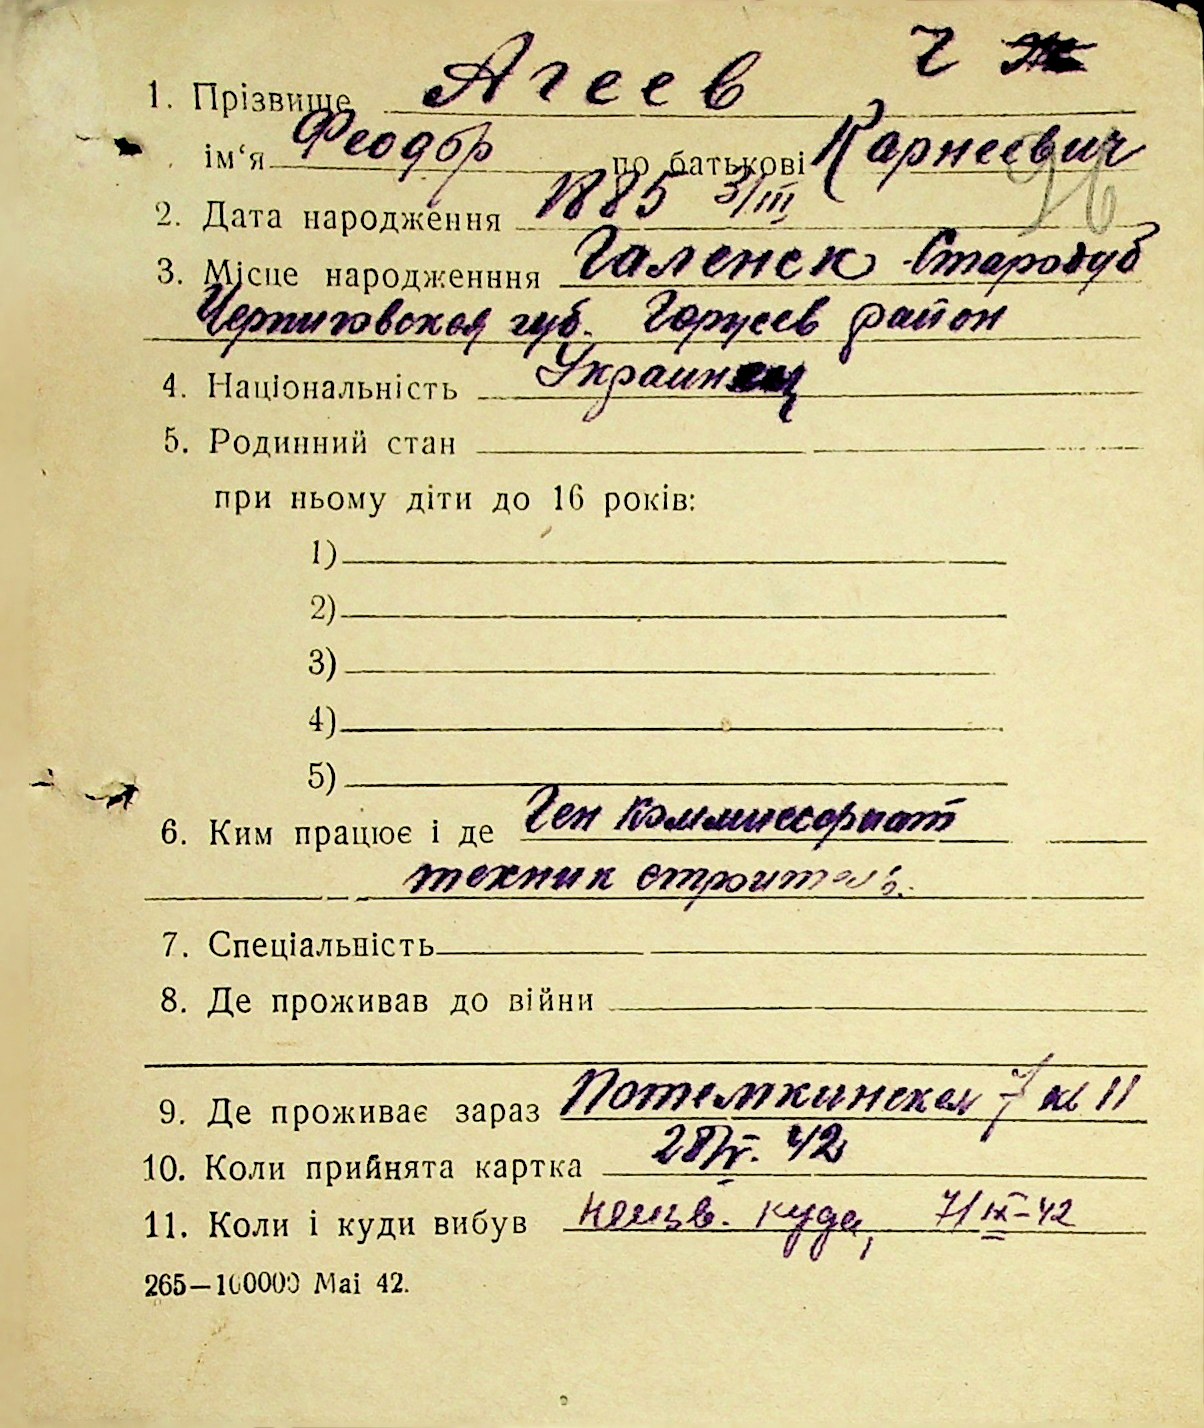 Ч Ж
1. Прізвище Агеев
ім‘я Феодор по батькові Карнеевич
2. Дата народження 1885 3/III
3. Місце народженння Галенск Стародуб
Черниговская губ. район
4. Національність Украинец
5. Родинний стан
при ньому діти до 16 років:
1)
2)
3)
4)
5)
6. Ким працює і де Ген Коммиссариат
техник строитель.
7. Спеціальність
8. Де проживав до війни
9. Де проживає зараз Потемкинская 7 кв 11
10. Коли прийнята картка 42
11. Коли і куди вибув неизв. куда, 7/IX-42
265—100000 Mai 42.